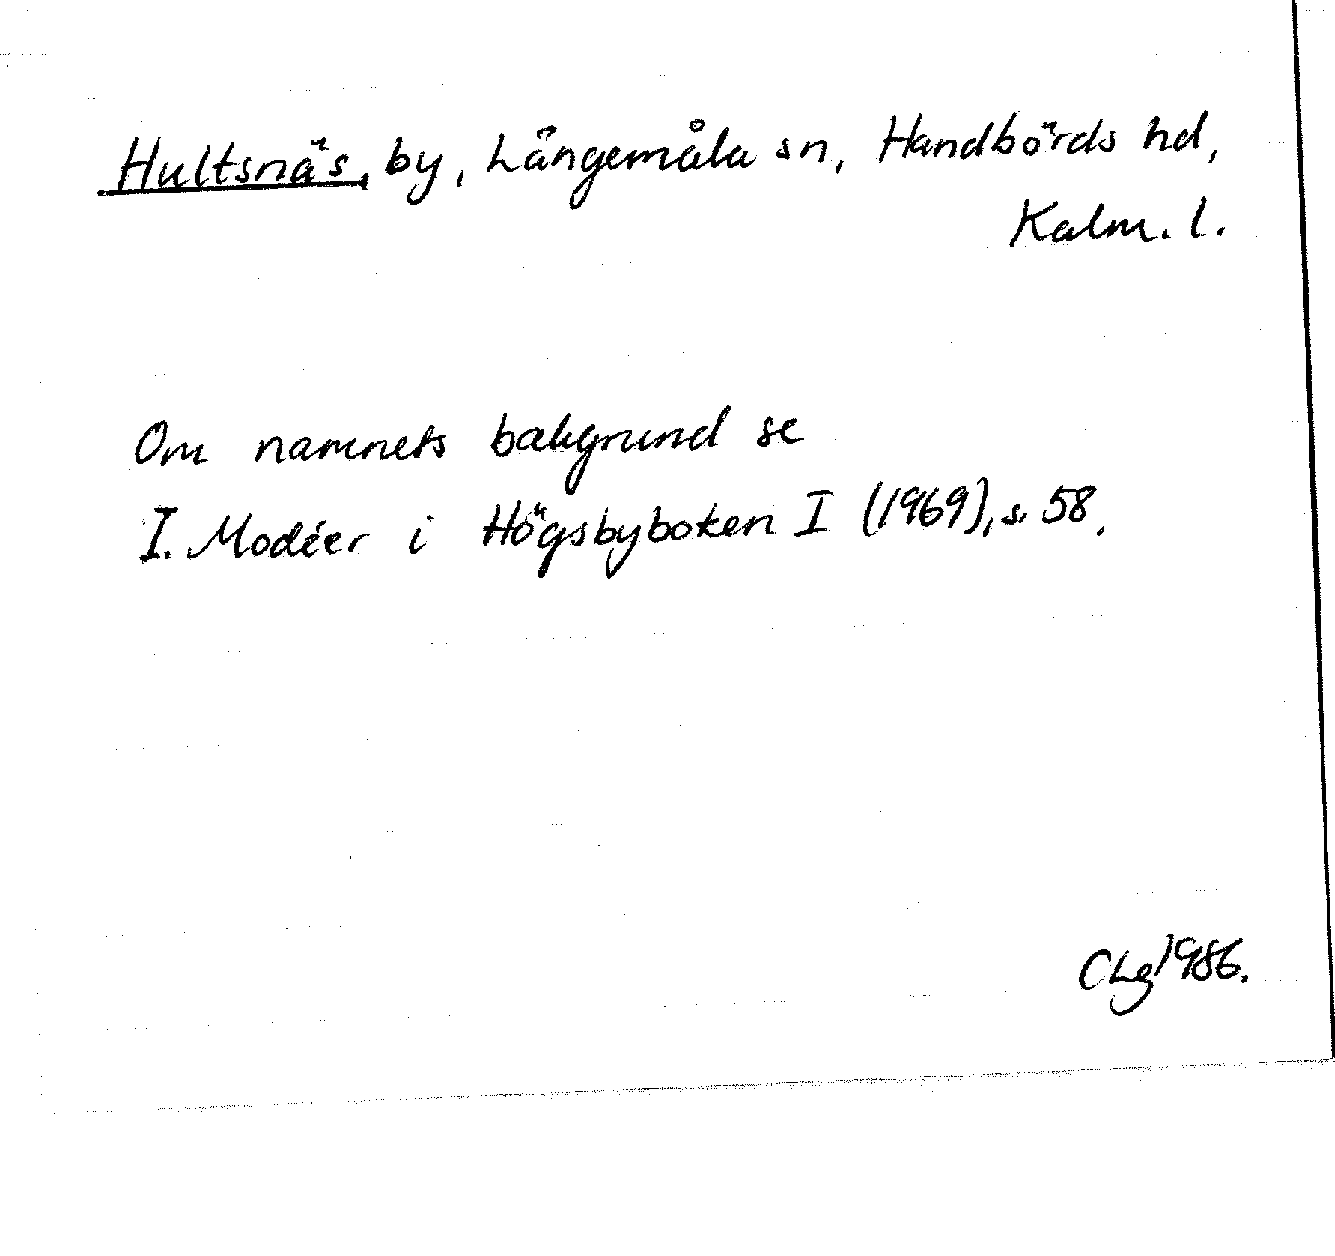 Hultsnäs, by, Långemåla sn, Handbörds hd,
Kalm. l.
Om namnets bakgrund se
I. Modéer i Högsbyboken I (1969), s. 58.
CLg 1986.